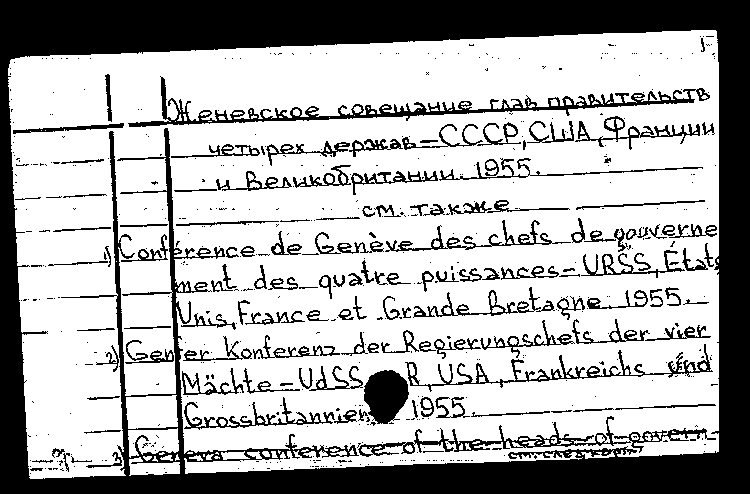 Женевское совещание глав правительств
четырех держав – СССР, США, Франции
и Великобритании. 1955.
см. также
1) Conférence de Genève des chefs de gouverne
ment des quatre puissances – URSS, États
Unis, France et Grande Bretagne. 1955.
2) Genfer Konferenz der Regierungschefs der vier
Mächte – UdSS R, USA, Frankreichs und
Grossbritannien 1955.
3) Geneva conference of the heads of govern-
см. след. карт.